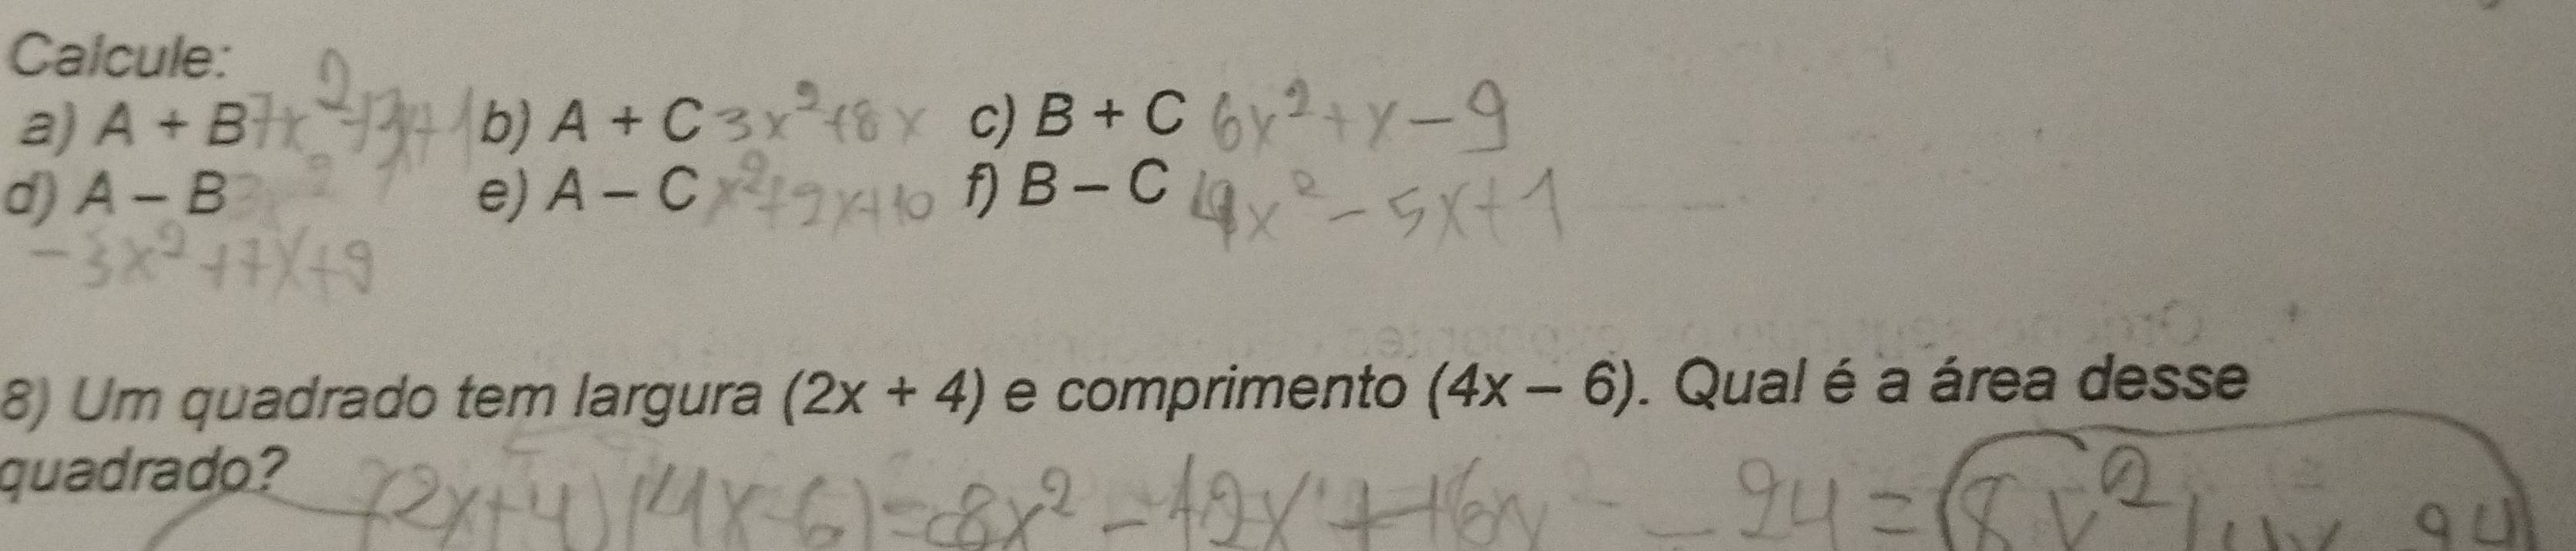 Calcule:
a) A + B 7x² + 3x + 1 b) A + C 3x² + 8x c) B + C 6x² + x - 9
d) A - B e) A - C x² + 2x + 10 f) B - C 4x² - 5x + 1
-3x² + 7x + 9
8) Um quadrado tem largura (2x + 4) e comprimento (4x - 6). Qual é a área desse
quadrado?
(2x+4)(4x-6) = 8x² - 12x + 16x - 24 = 8x² + 4x - 24